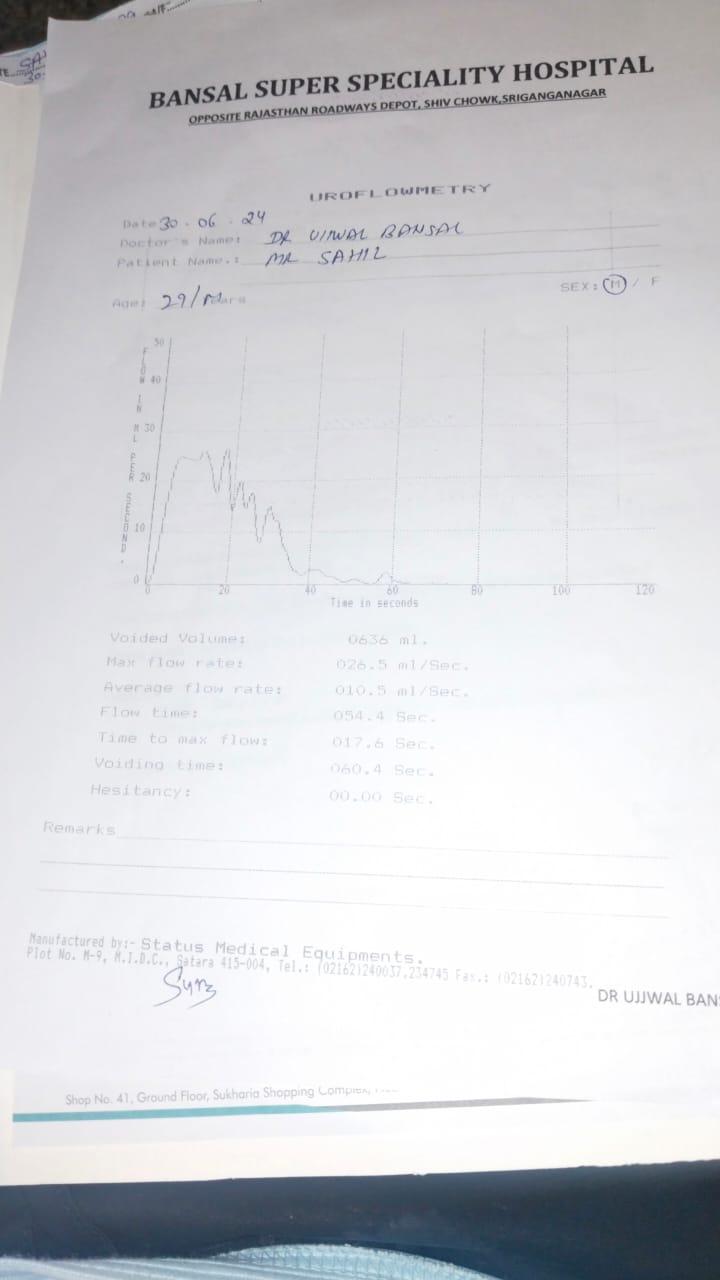 BANSAL SUPER SPECIALITY HOSPITAL
OPPOSITE RAJASTHAN ROADWAYS DEPOT, SHIV CHOWK,SRIGANGANAGAR
UROFLOWMETRY
Date 30 . 06 . 24
Doctor's Name: DR UJJWAL BANSAL
Patient Name.: MR SAHIL
Age: 29/M
SEX: M / F
FLOW IN ML PER SECOND.
50
40
30
20
10
0
0 20 40 60 80 100 120
Time in seconds
Voided Volume: 0636 ml.
Max flow rate: 026.5 ml/Sec.
Average flow rate: 010.5 ml/Sec.
Flow time: 054.4 Sec.
Time to max flow: 017.6 Sec.
Voiding time: 060.4 Sec.
Hesitancy: 00.00 Sec.
Remarks
Manufactured by:- Status Medical Equipments.
Plot No. M-9, M.I.D.C., Satara 415-004, Tel.: (02162)240037,234745 Fax.: (02162)240743.
DR UJJWAL BANS
Shop No. 41, Ground Floor, Sukharia Shopping Complex,